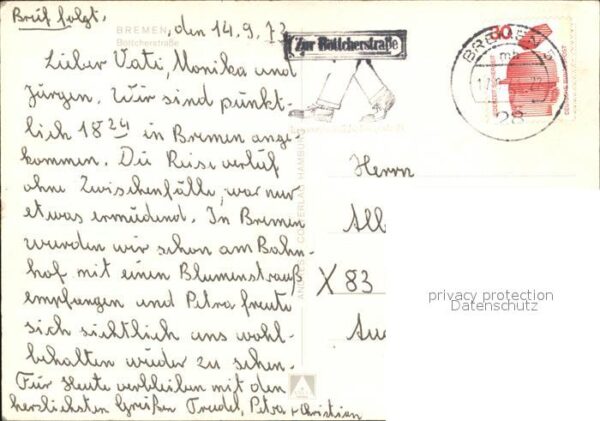 Brief folgt.
BREMEN, den 14.9.73
Böttcherstraße
Lieber Vati, Monika und
Jürgen. Wir sind pünkt-
lich 18 24 in Bremen ange
kommen. Die Reise verlief
ohne Zwischenfälle, war nur
etwas ermüdend. In Bremen
wurden wir schon am Bahn-
hof mit einen Blumenstrauß
empfangen und Petra freute
sich sichtlich uns wohl-
behalten wieder zu sehen.
Für Heute verbleiben mit den
herzlichsten Grüßen Trudel, Petra + Christian
Zur Böttcherstraße
BREMEN
mb
28
60
Herrn
Alb
X 83
Au
privacy protection
Datenschutz